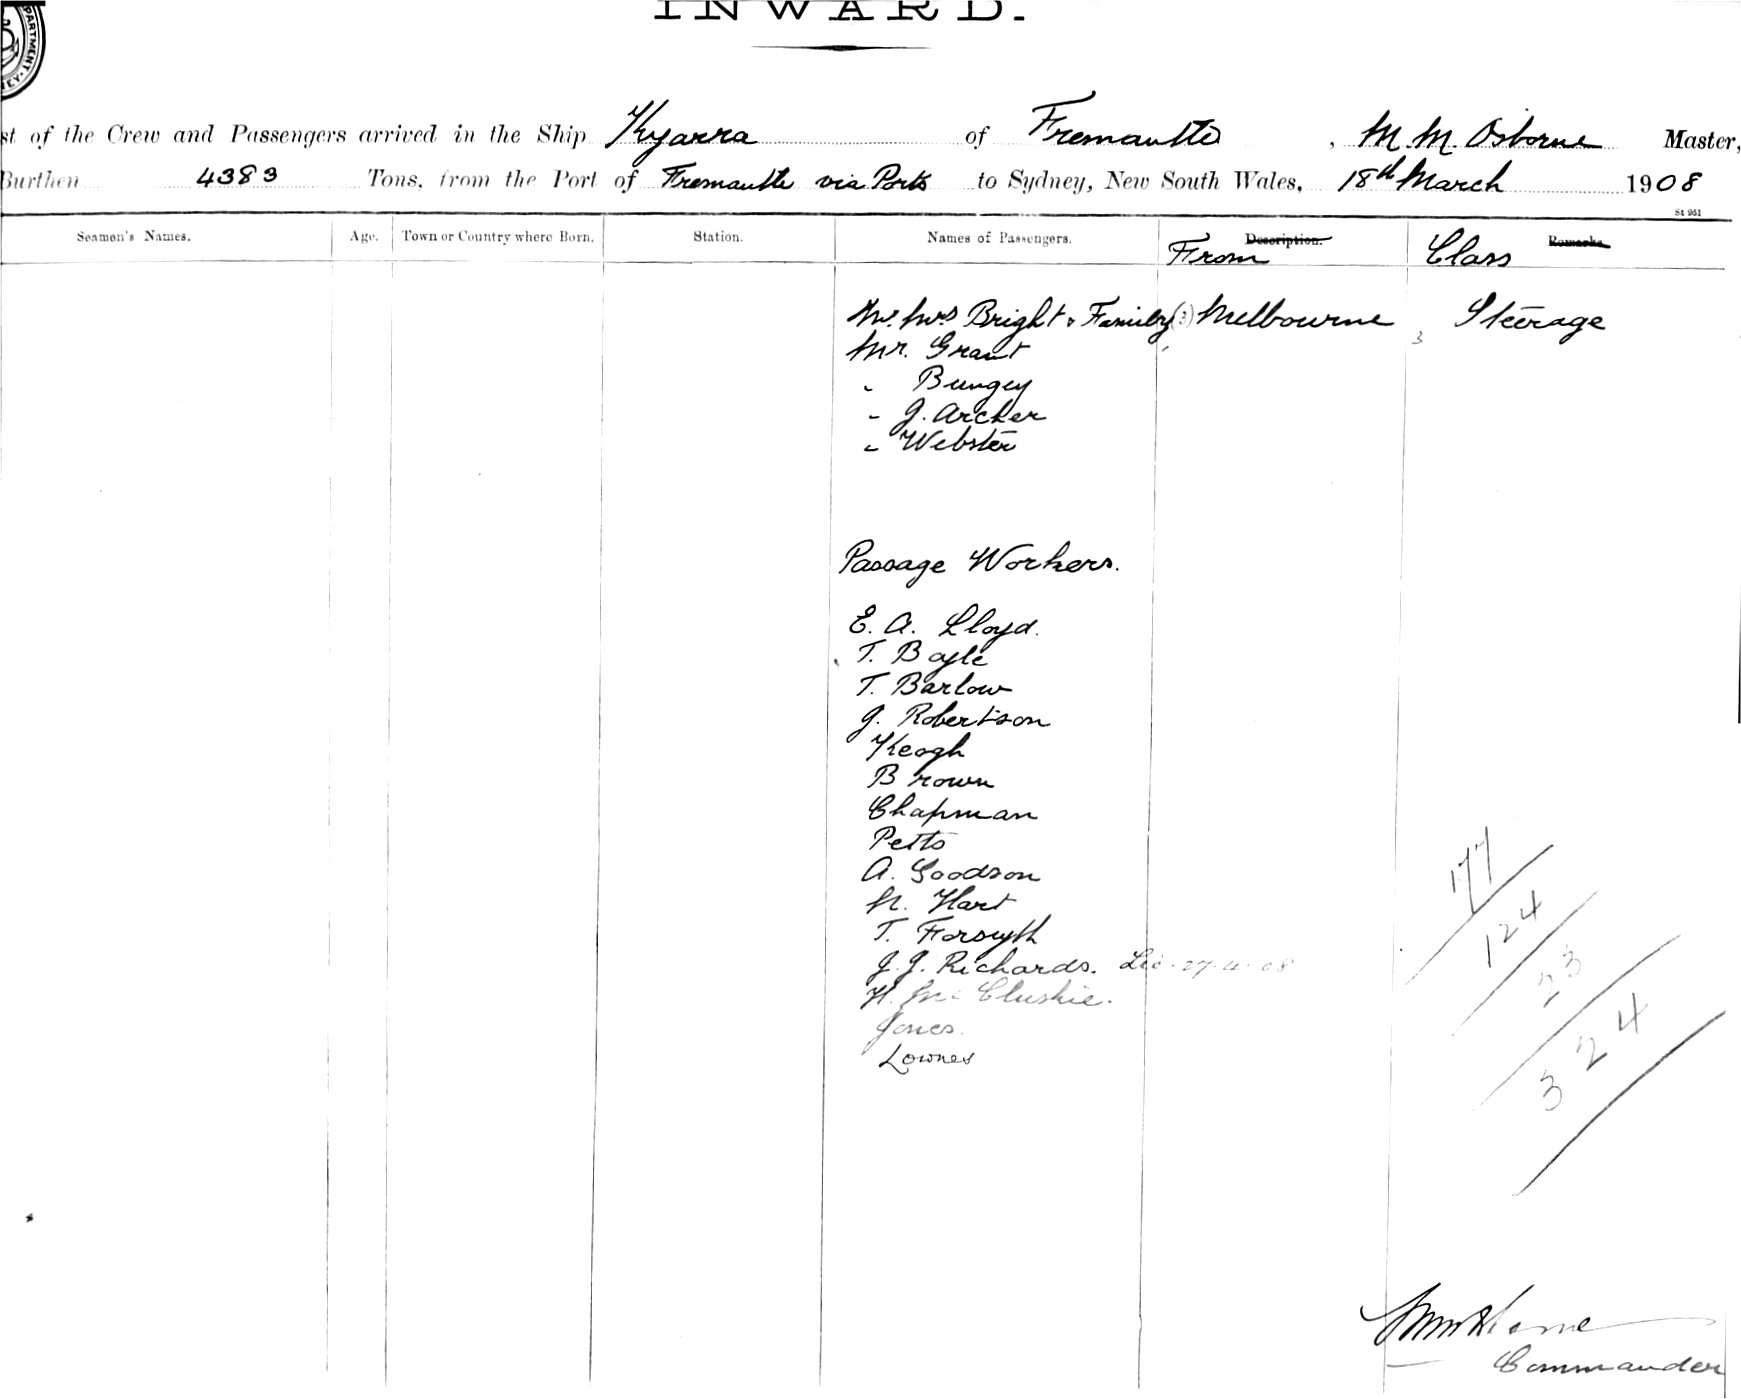 INWARD.
st of the Crew and Passengers arrived in the Ship Kyarra of Fremantle, M. M. Osborne Master,
Burthen 4383 Tons, from the Port of Fremantle via Ports to Sydney, New South Wales, 18th March 1908
St 951
Seamen's Names. Age. Town or Country where Born. Station. Names of Passengers. Description. From Class Remarks.
Mr. Mrs Bright & Family (3) Melbourne 3 Steerage
Mr. Grant
" Bungey
" J. Archer
" Webster
Passage Workers.
E. A. Lloyd.
T. Boyle
T. Barlow
J. Robertson
Keogh
Brown
Chapman
Petts
A. Goodson
M. Hart
T. Forsyth
J. J. Richards. 27.4.08
H. McCluskie.
Jones.
Lownes
177
124
23
324
Commander
PARTMENT